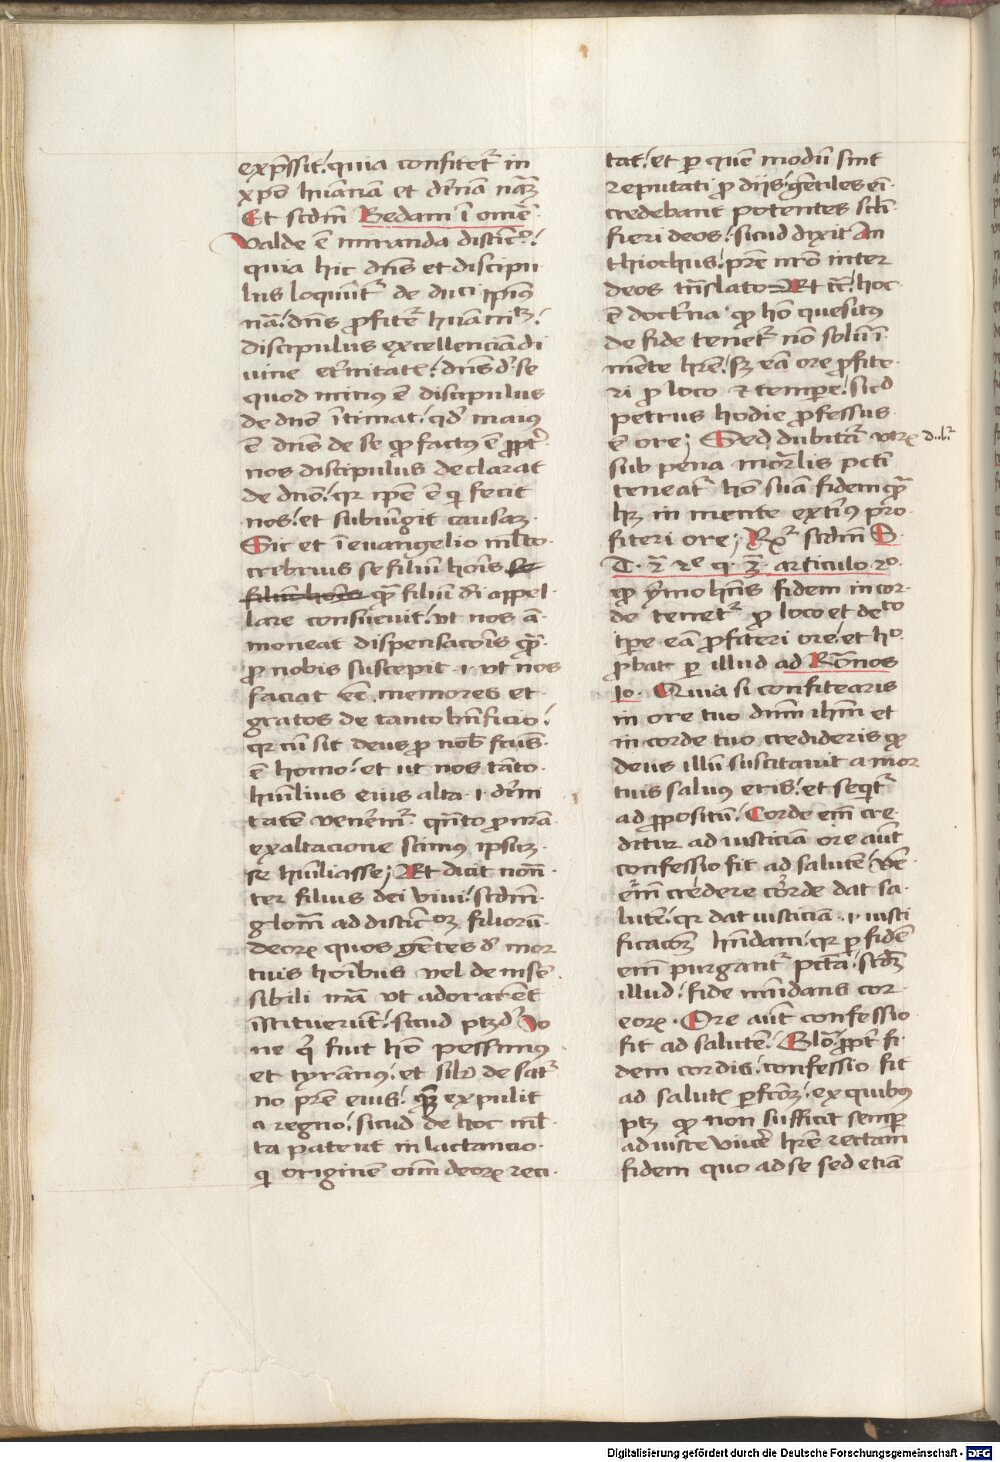 exp̄ssit: quia confitet᷑ in
xp̄o hūanam et diuīa nāʒ
Et scd̄m Bedam ī omēl
valde ē miranda distinc̄o:
quia hic dn̄s et discipu
lus loquūt᷑ de duci ip̄ius
nā: dn̄s ꝓfitet᷑ hūanit̄
discipulus excellenciā di
uine et̄nitatē: dn̄s d̄ se
quod minus ē discipulus
de dn̄o ītimat: qd̄ maius
ē dn̄s de se ꝙ factus ē ꝓpt̄
nos discipulus declarat
de dn̄o: qꝛ ip̄e ē qͥ fecit
nos: et subiūgit causaʒ
Sic et ī euangelio ml̄to
crebrius se filiū hoīs se
filiū hoīs qͣ filiū dī appel
lare consueuit: vt nos a
moneat dispensac̄ois qͣ
ꝓ nobis suscepit ⸱i⸱ vt nos
faciat ēē memores et
gratos de tanto bn̄ficio:
qꝛ cū sit deus ꝓ nob̄ fcūs
ē homo: et ut nos tāto
humlius eius alta ⸱i⸱ diuī
tatē venerem᷑ qn̄to ꝓ nr̄a
exaltacione scimus ipsuʒ
se humliasse; Et dicit nōn
ter filius dei viui: scd̄m
glosā ad distinc̄oʒ filiorū
deorꝝ quos gētes d̄ mor
tuis hoībus vel de insē
sibili mā vt adorarent
īstituerūt: sicud ptʒ d̄ Io
ne qͥ fuit hō pessimus
et tyrānus: et sil̄r de sat᷑
no pr̄e eius: quē expulit
a regno: sicud de hoc ml̄
ta patent in lactancio
qͥ originē oīm deorꝝ reci
tat: et per quē modū sint
reputati ꝓ diis: gentiles ei
credebant potentes sc̄li
fieri deos: sicud dixit An
thiochus: pr̄e meo inter
deos trāslato Et tc̄: hoc
ē doct᷑na ꝙ hō quesitus
de fide tenet᷑ nō solū ī
mente hr̄e: sʒ eā ore ꝓfite
ri ꝓ loco ⁊ temꝑe: sicd
petrus hodie ꝓfessus
ē ore; Sed dubitat᷑ vtrꝝ dub᷑
sub pena morlis pcti
teneat᷑ hō suā fidem qͣ
hʒ in mente exterius pro
fiteri ore; Rx᷑ scd̄m S
T. 2ᵃ 2ᵉ q. 3. articulo 2°
ꝙ ymo hn̄s fidem in cor
de tenet᷑ ꝓ loco et deᵗᵒ
tꝑe eā ꝓfiteri ore: et h°
ꝓbat ꝑ illud ad Rōnos
10. Quia si confitearis
in ore tuo dnm̄ ihm̄ et
in corde tuo credideris ꝙ
deus illū suscitauit a mor
tuis saluus eris: et seqit᷑
ad ꝓpositū: Corde em̄ cre
ditur ad iusticiā ore aūt
confessio fit ad salutē: vē
em̄ credere corde dat sa
lutē: qꝛ dat iusticiā ⸱i⸱ iusti
ficac̄oʒ hn̄dam: qꝛ ꝑ fidē
em̄ purgant᷑ pctā: scdʒ
illud: fide mūdans cor
eorꝝ. Ore aūt confessio
fit ad salutē: Glō: ꝓpt᷑ fi
dem cordis: confessio fit
ad salutꝭ ꝑfcōʒ: ex quibus
ptʒ ꝙ non sufficit semꝑ
ad iuste viuēd hr̄e rectam
fidem quo ad se sed etiā
Digitalisierung gefördert durch die Deutsche Forschungsgemeinschaft - DFG